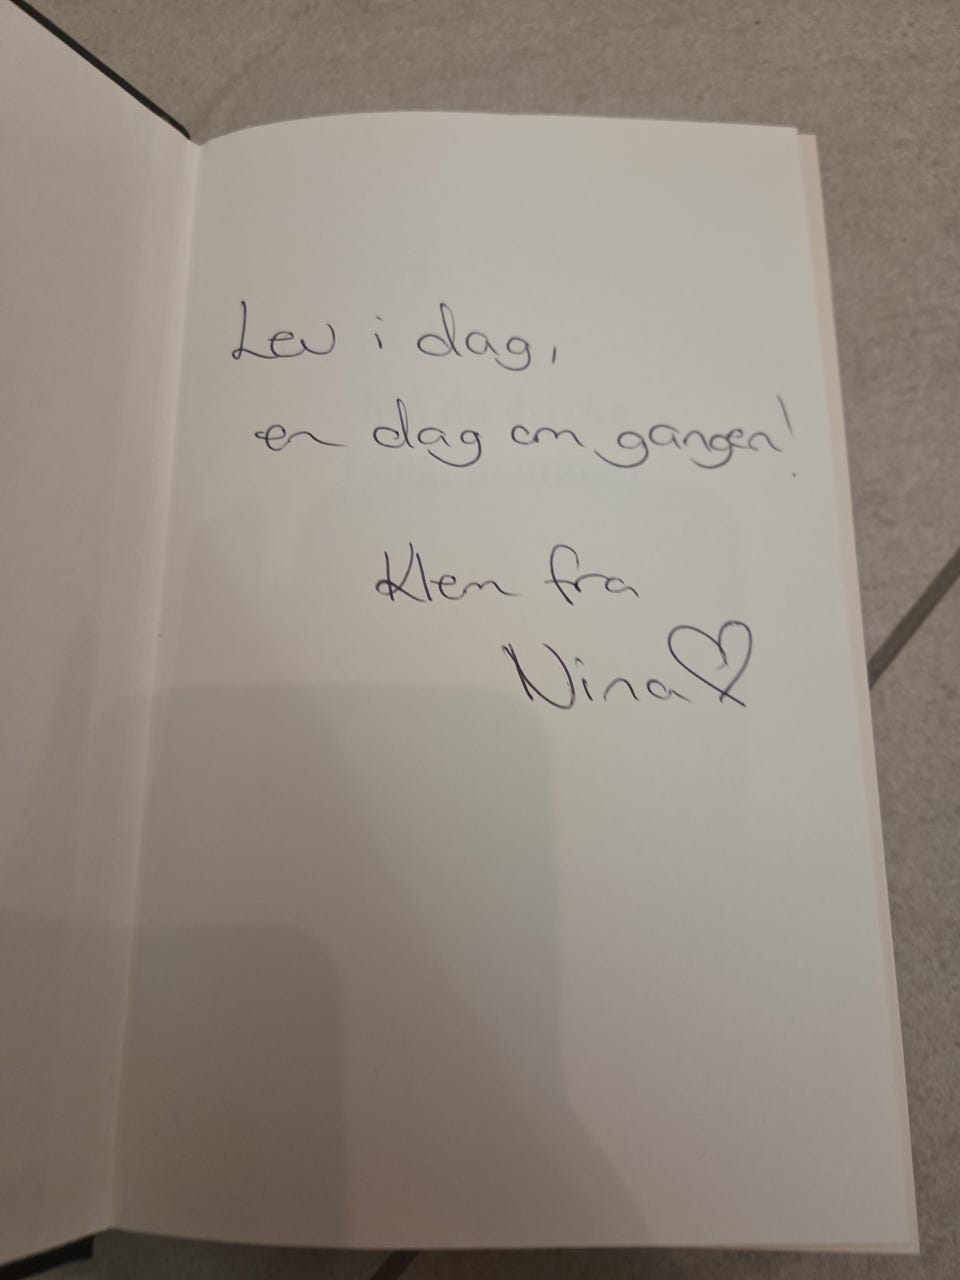 Lev i dag,
en dag om gangen!
Klem fra
Nina♡